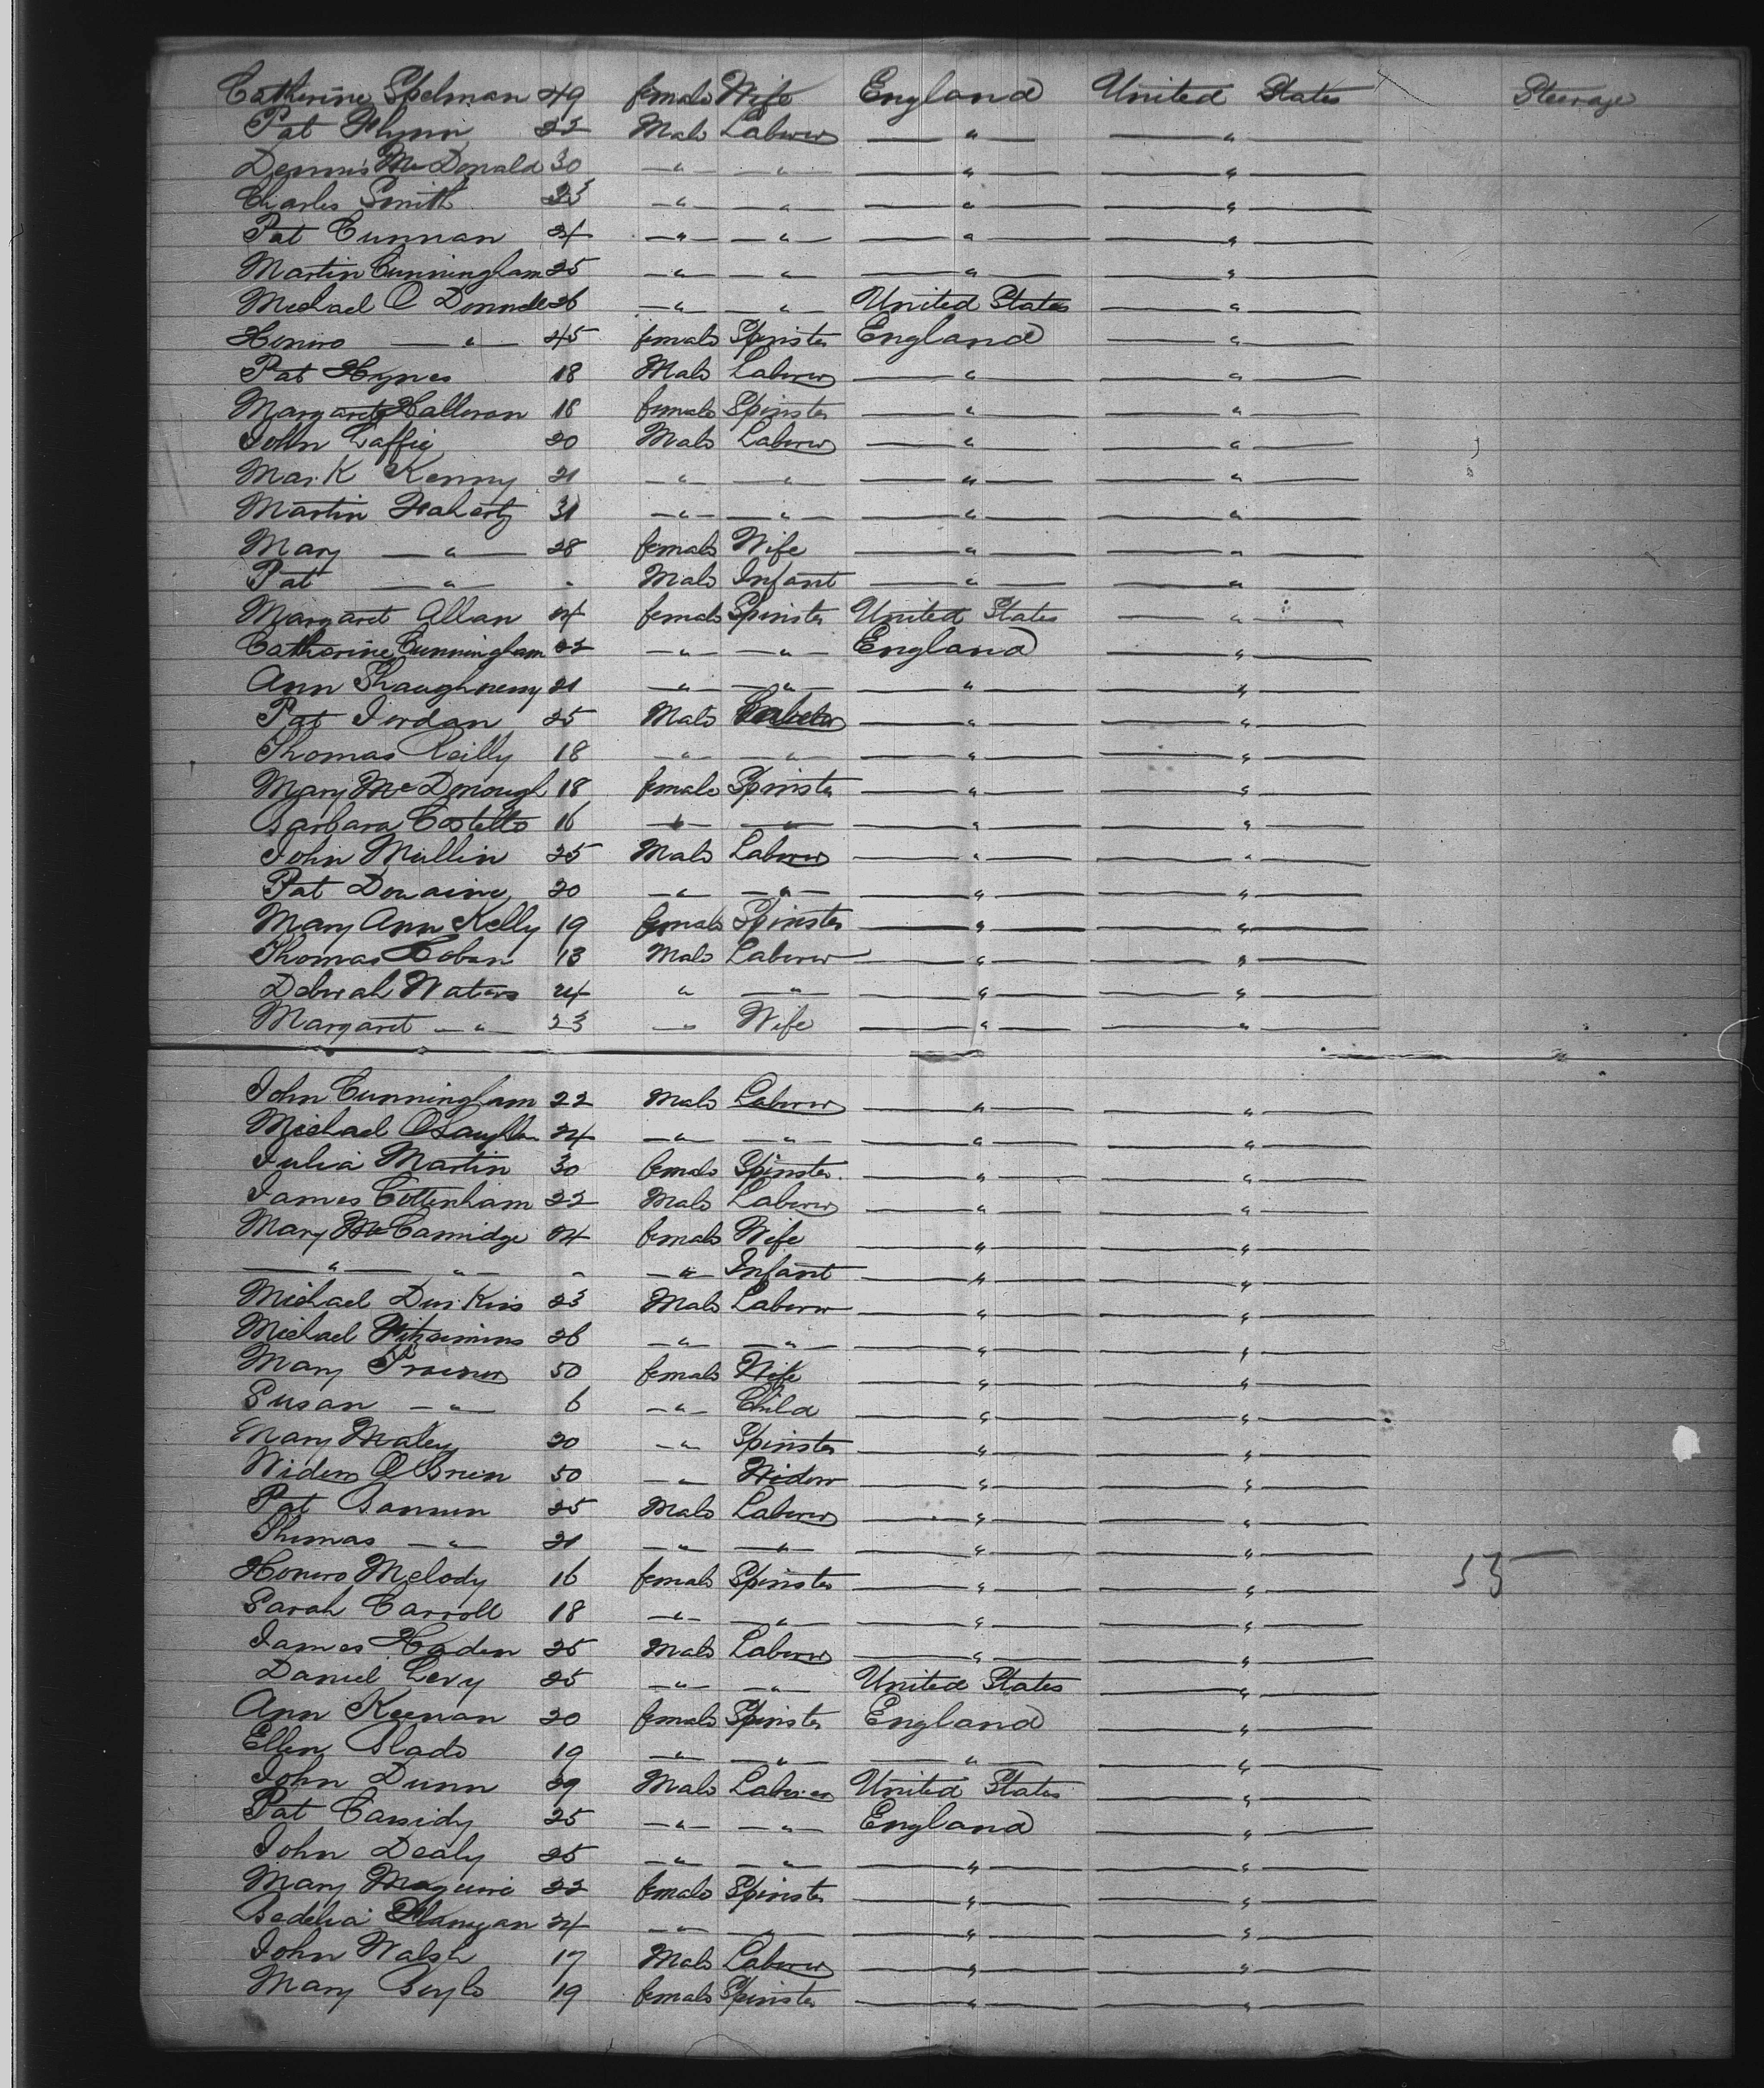 Catherine Spelman 49 female Wife England United States Steerage
Pat Flynn 22 Male Laborer " "
Dennis McDonald 30 " " " "
Charles Smith 23 " " " "
Pat Cunnan 24 " " " "
Martin Cunningham 25 " " " "
Michael O Donnell 26 " " United States "
Honora " 45 female Spinster England "
Pat Hynes 18 Male Laborer " "
Margaret Halloran 18 female Spinster " "
John Laffie 20 Male Laborer " "
Mark Kenny 21 " " " "
Martin Flaherty 31 " " " "
Mary " 28 female Wife " "
Pat " - Male Infant " "
Margaret Allan 24 female Spinster United States "
Catherine Cunningham 22 " " England "
Ann Shaughnessy 21 " " " "
Pat Jordan 25 Male " "
Thomas Reilly 18 " " " "
Mary McDonough 18 female Spinster " "
Barbara Costello 16 " " " "
John Mullin 25 Male Laborer " "
Pat 20 " " " "
Mary Ann Kelly 19 female Spinster " "
Thomas Hoban 13 Male Laborer " "
Deborah Waters 24 " " " "
Margaret " 23 " Wife " "
John Cunningham 22 Male Laborer " "
Michael 24 " " " "
Julia Martin 30 female Spinster " "
James Cottenham 22 Male Laborer " "
Mary McCamidge 24 female Wife " "
" " - " Infant " "
Michael Durkin 23 Male Laborer " "
Michael Fitzsimins 26 " " " "
Mary 50 female Wife " "
Susan " 6 " Child " "
Mary Maley 20 " Spinster " "
Widow O Brien 50 " Widow " "
Pat Bannun 25 Male Laborer " "
Thomas " 21 " " " "
Honora Melody 16 female Spinster " "
Sarah Carroll 18 " " " "
James Haden 25 Male Laborer " "
Daniel Levy 25 " " United States "
Ann Keenan 20 female Spinster England "
Ellen Slade 19 " " " "
John Dunn 29 Male Laborer United States "
Pat Cassidy 25 " " England "
John Dealy 25 " " " "
Mary Maguire 22 female Spinster " "
Bedelia Flanigan 24 " " " "
John Walsh 17 Male Laborer " "
Mary Boyle 19 female Spinster " "